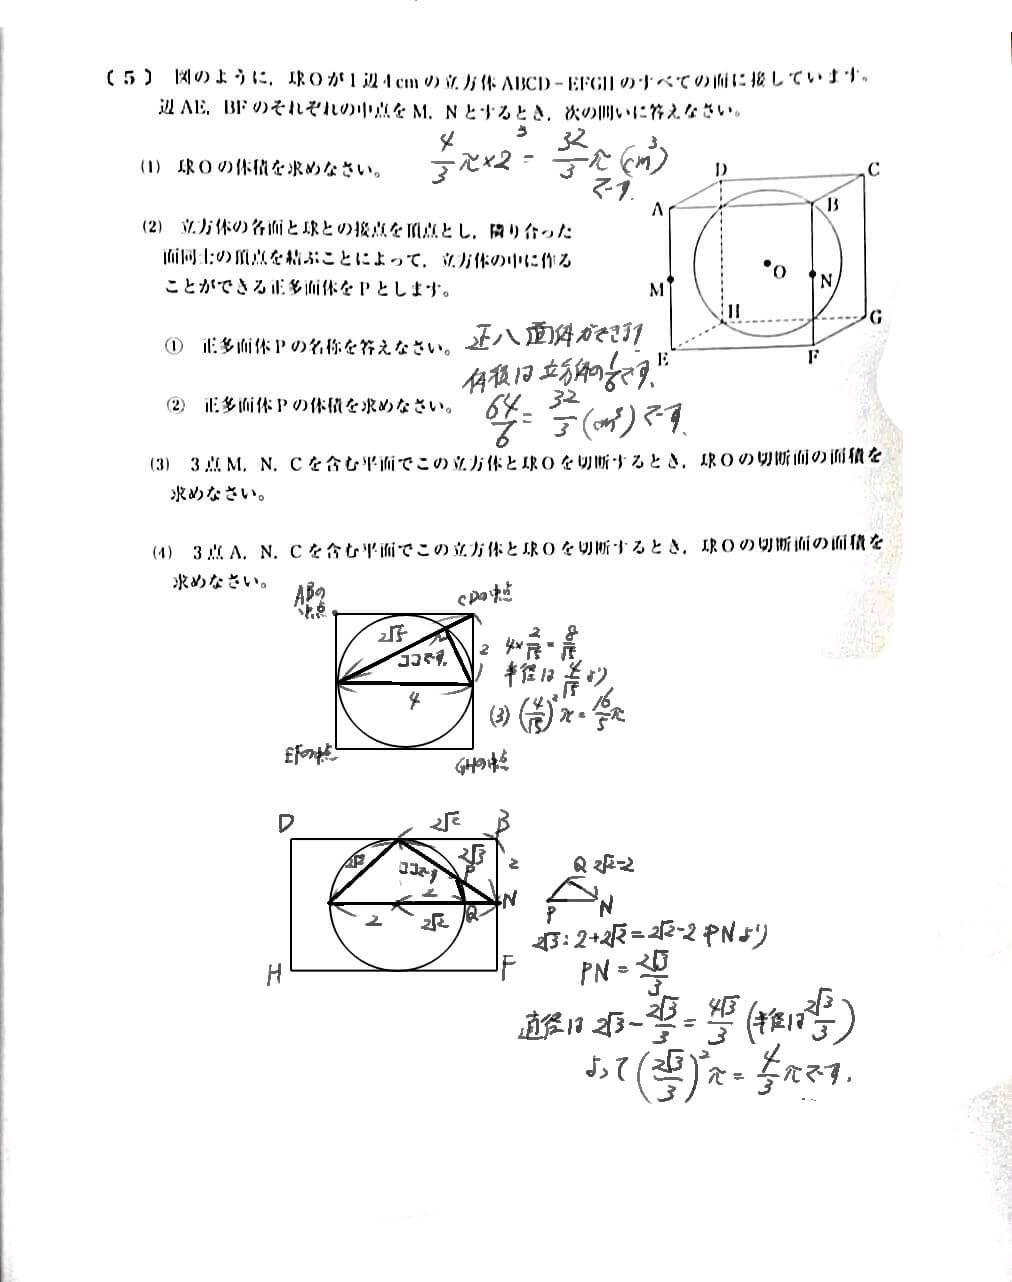 〔５〕 図のように，球Ｏが１辺４cmの立方体 ABCD－EFGHのすべての面に接しています。
辺AE，BFのそれぞれの中点をM，Nとするとき，次の問いに答えなさい。
(1) 球Ｏの体積を求めなさい。
4/3 π×2³ = 32/3 π (cm³)
です。
(2) 立方体の各面と球との接点を頂点とし，隣り合った
面同士の頂点を結ぶことによって，立方体の中に作る
ことができる正多面体をＰとします。
① 正多面体Ｐの名称を答えなさい。
正八面体ができます
体積は立方体の1/6です。
② 正多面体Ｐの体積を求めなさい。
64/6 = 32/3 (cm³) です。
D
C
A
B
O
M
N
H
G
E
F
(3) ３点M，N，Cを含む平面でこの立方体と球Ｏを切断するとき，球Ｏの切断面の面積を
求めなさい。
(4) ３点A，N，Cを含む平面でこの立方体と球Ｏを切断するとき，球Ｏの切断面の面積を
求めなさい。
ABの
中点
CDの中点
2√5
ココです。
2
4
EFの中点
GHの中点
4×2/√5 = 8/√5
半径は4/√5より
(3) (4/√5)²π = 16/5π
D
2√2
B
2√2
ココです
2√3
P
2
2
N
2
2√2
Q
H
F
Q 2√2-2
P
N
2√3 : 2+2√2 = 2√2-2 : PNより
PN = 2√3/3
直径は 2√3 - 2√3/3 = 4√3/3 (半径は2√3/3)
よって (2√3/3)²π = 4/3πです。